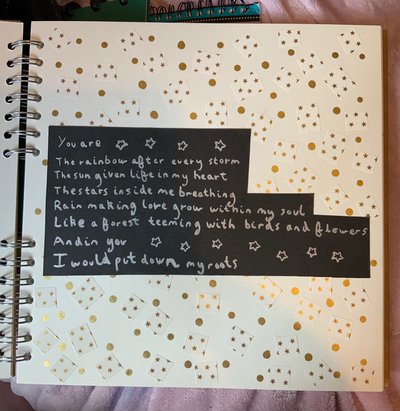 You are
The rainbow after every storm
The sun given life in my heart
The stars inside me breathing
Rain making love grow within my soul
Like a forest teeming with birds and flowers
And in you
I would put down my roots